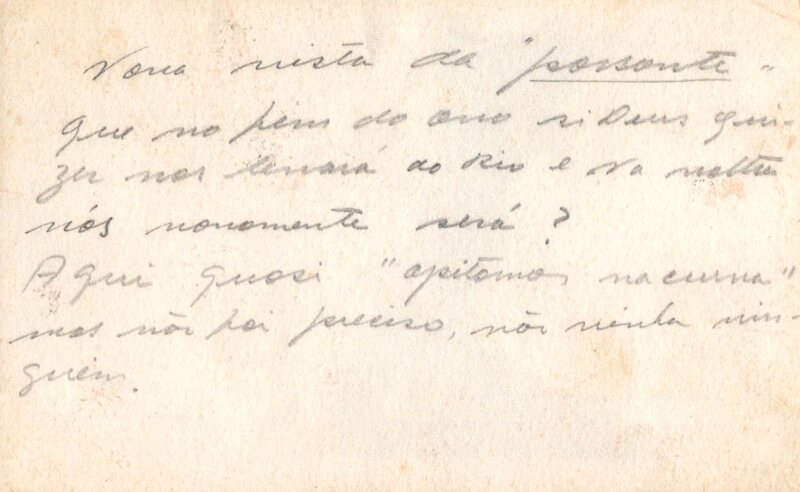 Nova vista da "possante"
que no fim do ano si Deus qui-
zer nos levará ao Rio e na volta
nós novamente será?
Aqui quasi "apitamos na curva"
mas não foi preciso, não vinha nin-
guém.